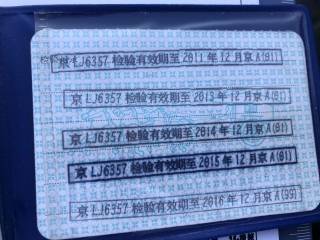 京LJ6357 检验有效期至2011年12月京A(01)
京LJ6357 检验有效期至2013年12月京A(01)
京LJ6357 检验有效期至2014年12月京A(01)
京LJ6357 检验有效期至2015年12月京A(01)
京LJ6357 检验有效期至2016年12月京A(99)